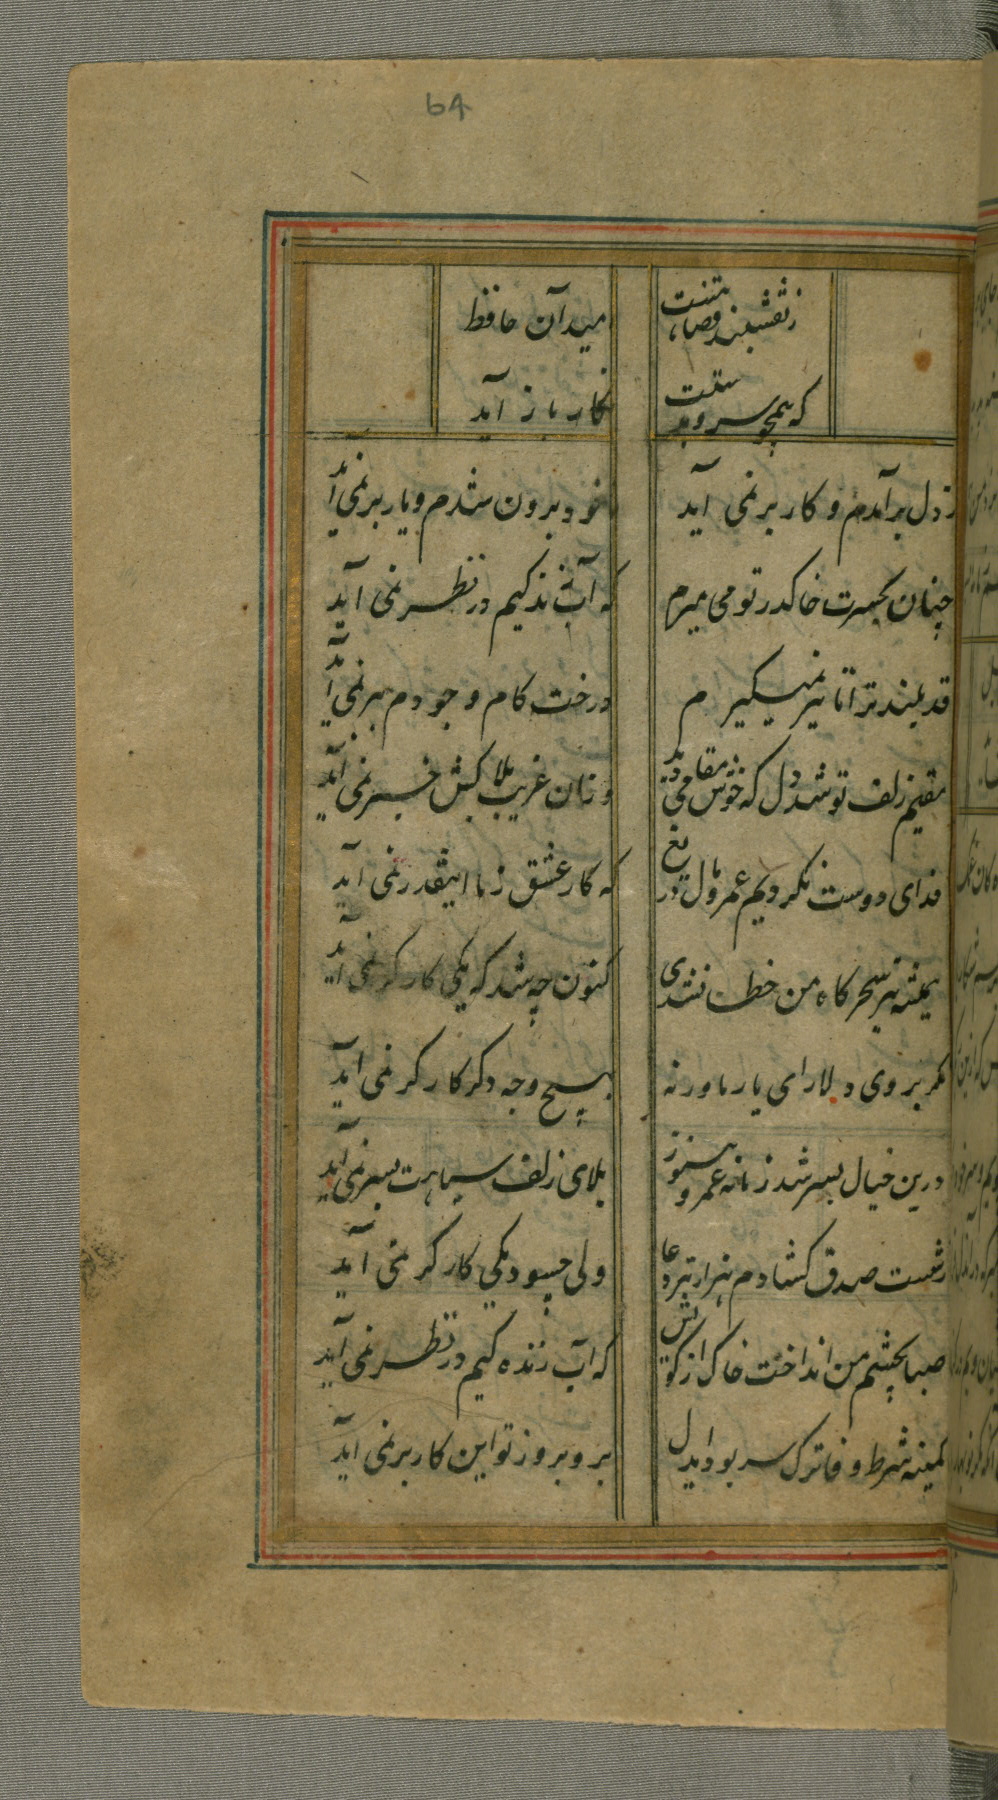 64
ز نقشبند قضا نیست
میدآن حافظ
که همچو سرو بد ستت
نکار باز آید
ز دل برآمدم و کار بر نمی آید
ز خود برون شدم و یار بر نمی آید
چنان بحسرت خاکدر تو می میرم
که آب زندکیم در نظر نمی آید
قد بلند ترا تا ببر نمیکیرم
درخت کام و جودم ببر نمی آید
مقیم زلف تو شد دل که خوش مقامی دید
وزان غریب بلا کش خبر نمی آید
فدای دوست نکردیم عمر و مال دریغ
که کار عشق ز ما اینقدر نمی آید
همیشه تیر سحر کاه من خطا نشدی
کنون چه شد که یکی کار کر نمی آید
مکر بروی دلارای یار ما ور نه
بهیچ وجه دکر کار کر نمی آید
درین خیال بسر شد زمانه عمر و هنوز
بلای زلف سیاهت بسر نمی آید
ز شست صدق کشادم هزار تیر دعا
ولی چسود یکی کار کر نمی آید
صبا بچشم من انداخت خاک از کویش
که آب زنده کیم در نظر نمی آید
کمینه شرط وفا ترک سر بود ایدل
برو برو ز تو این کار بر نمی آید